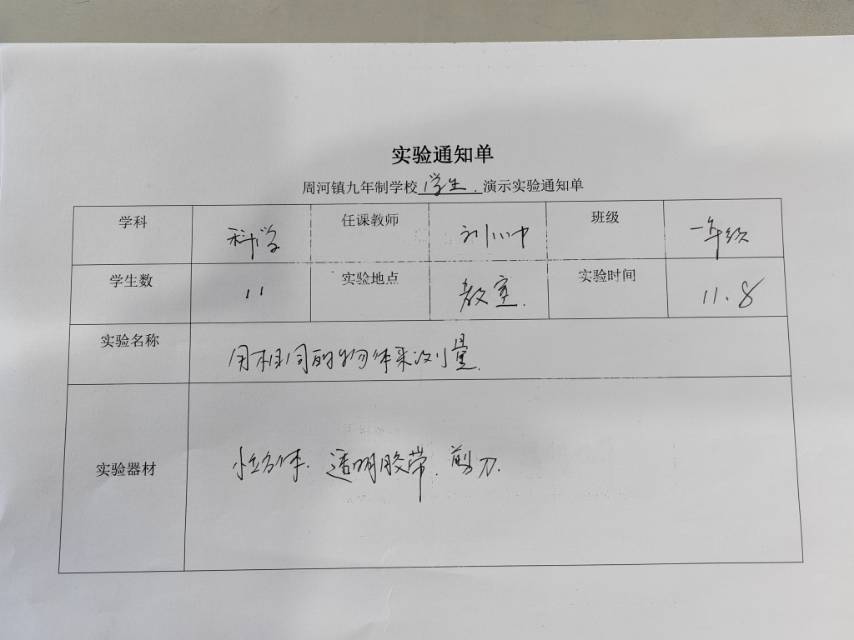 实验通知单
周河镇九年制学校 学生. 演示实验通知单
学科 科学 任课教师 刘 班级 一年级
学生数 11 实验地点 教室. 实验时间 11.8
实验名称 用相同的物体来测量.
实验器材 小立方体. 透明胶带. 剪刀.